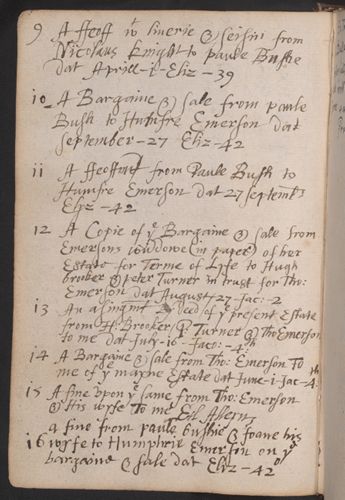 9 A ffeoff wt liverie & seisin from
Nicolaus Knight to Paule Bushe
dat Aprill-i-Eliz-39
10 A Bargaine & sale from paule
Bush to Humfre Emerson dat
September-27 Eliz-42
11 A ffeoffmt from Paule Bush to
Humfre Emerson dat 27 septembr
Eliz-42
12 A Copie of ye Bargaine & sale from
Emersons widdowe (in paper) of her
Estate for Terme of Lyfe to Hugh
brooker & peter Turner in trust for Tho:
Emerson dat August 27 Jac:-2
13 An assignmt deed of ye present Estate
from H: Brooker P. Turner & Tho Emerson
to me dat July-16-Jaco:-4th
14 A Bargaine & sale from Tho: Emerson To
me of ye mayne Estate dat June-i-Jac-4th
15 A fine upon ye same from Tho: Emerson
& His wyfe To me Ed. Alleyn
a fine from paule bushe & Joane his
16 wyfe to Humphrie Emerson on ye
bargaine & sale dat Eliz-42